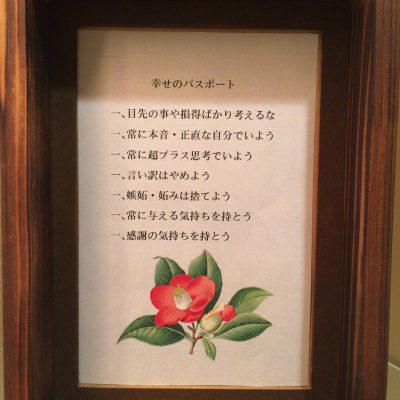 幸せのパスポート
一、目先の事や損得ばかり考えるな
一、常に本音・正直な自分でいよう
一、常に超プラス思考でいよう
一、言い訳はやめよう
一、嫉妬・妬みは捨てよう
一、常に与える気持ちを持とう
一、感謝の気持ちを持とう